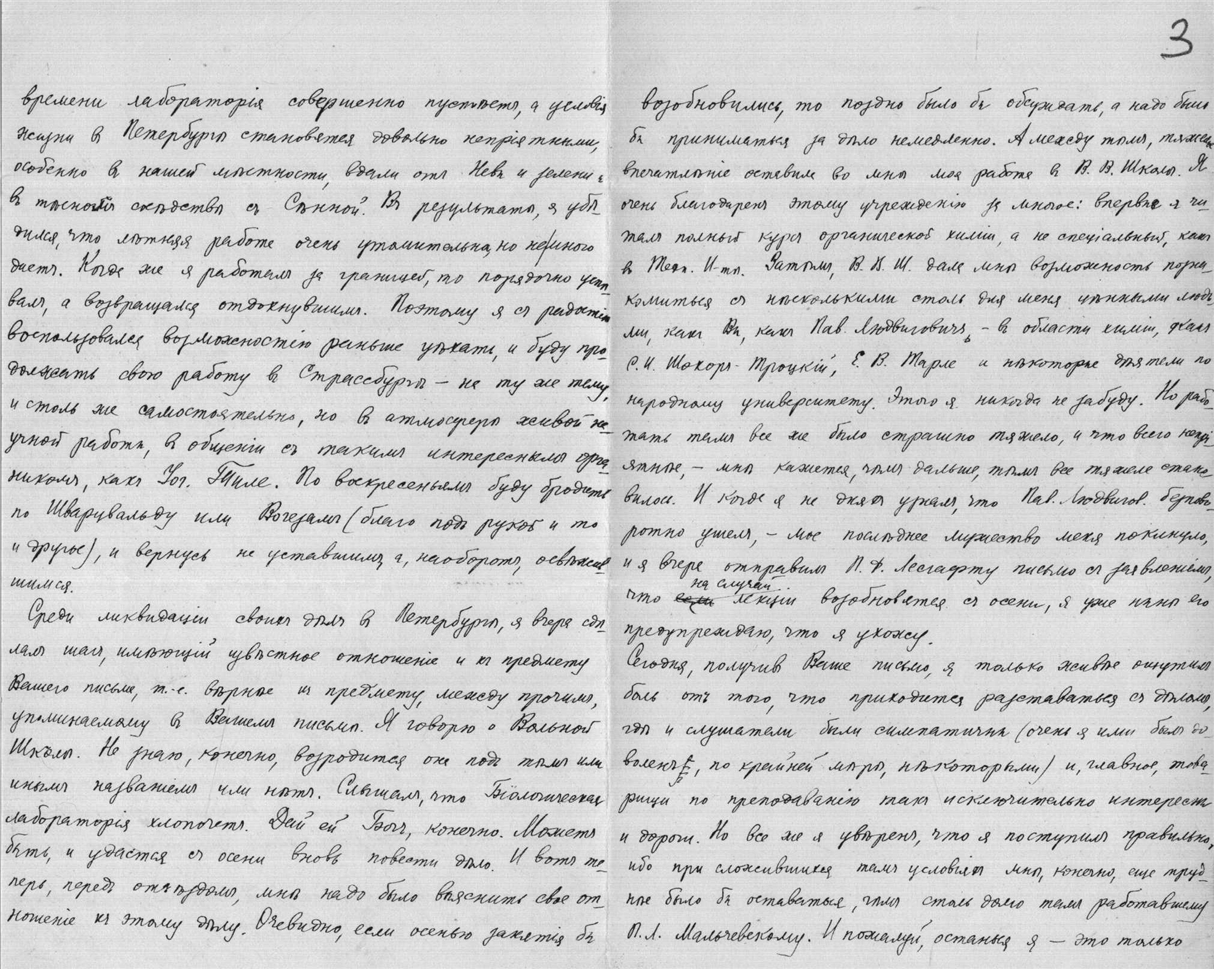 3
времени лабораторія совершенно пустѣетъ, а условія
жизни въ Петербургѣ становятся довольно непріятными,
особенно въ нашей мѣстности, вдали отъ Невы и зелени и
въ тѣсномъ сосѣдствѣ съ Сѣнной. Въ результатѣ, я убѣ-
дился, что лѣтняя работа очень утомительна, но немного
даетъ. Когда же я работалъ за границей, то порядочно успѣ-
валъ, а возвращался отдохнувшимъ. Поэтому я съ радостью
воспользовался возможностью раньше уѣхать, и буду про-
должать свою работу въ Страссбургѣ — на ту же тему,
и столь же самостоятельно, но въ атмосферѣ живой на-
учной работы, въ общеніи съ такимъ интереснымъ орга-
никомъ, какъ Тиле. По воскресеньямъ буду бродить
по Шварцвальду или Вогезамъ (благо подъ рукой и то
и другое), и вернусь не уставшимъ, а, наоборотъ, освѣжив-
шимся.
Среди ликвидаціи своихъ дѣлъ въ Петербургѣ, я вчера сдѣ-
лалъ шагъ, имѣющій извѣстное отношеніе и къ предмету
Вашего письма, т.-е. вѣрнѣе къ предмету, между прочимъ,
упоминаемому въ Вашемъ письмѣ. Я говорю о Вольной
Школѣ. Не знаю, конечно, возродится она подъ тѣмъ или
инымъ названіемъ или нѣтъ. Слышалъ, что Біологическая
лабораторія хлопочетъ. Дай ей Богъ, конечно. Можетъ
быть, и удастся съ осени вновь повести дѣло. И вотъ те-
перь, передъ отъѣздомъ, мнѣ надо было выяснить свое от-
ношеніе къ этому дѣлу. Очевидно, если осенью занятія бы
возобновились, то поздно было бы обсуждать, а надо было
бы приниматься за дѣло немедленно. А между тѣмъ, тяжелое
впечатлѣніе оставила во мнѣ моя работа въ В. В. Школѣ. Я
очень благодаренъ этому учрежденію за многое: впервые я чи-
талъ полный курсъ органической химіи, а не спеціальный, какъ
въ Техн. И-тѣ. Затѣмъ, В. В. Ш. дала мнѣ возможность позна-
комиться съ нѣсколькими столь для меня цѣнными людь-
ми, какъ Вы, какъ Пав. Людвиговичъ, — въ области химіи, какъ
С. И. Шохоръ-Троцкій, Е. В. Тарле и нѣкоторые дѣятели по
народному университету. Этого я никогда не забуду. Но рабо-
тать тамъ все же было страшно тяжело, и что всего непрі-
ятнѣе, — мнѣ кажется, чѣмъ дальше, тѣмъ все тяжелѣе стано-
вилось. И когда я на дняхъ узналъ, что Пав. Людвигов. безпово-
ротно ушелъ, — мое послѣднее мужество меня покинуло,
и я вчера отправилъ П. Ф. Лесгафту письмо съ заявленіемъ,
на случай
что если лекціи возобновятся съ осени, я уже нынѣ его
предупреждаю, что я ухожу.
Сегодня, получивъ Ваше письмо, я только живѣе ощутилъ
боль отъ того, что приходится разставаться съ дѣломъ,
гдѣ и слушатели были симпатичны (очень я ими былъ до-
воленъ, по крайней мѣрѣ, нѣкоторыми) и, главное, това-
рищи по преподаванію такъ исключительно интересны
и дороги. Но все же я увѣренъ, что я поступилъ правильно,
ибо при сложившихся тамъ условіяхъ мнѣ, конечно, еще труд-
нѣе было бы оставаться, чѣмъ столь долго тамъ работавшему
П. Л. Мальчевскому. И пожалуй, останься я — это только